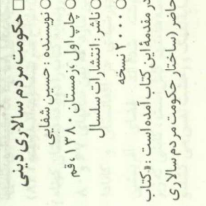 □ حکومت مردم سالاری دینی
○ نویسنده : حسین شفایی
○ چاپ اول ، زمستان ۱۳۸۰ ، قم
○ ناشر : انتشارات سلسال
○ ۲۰۰۰ نسخه
در مقدمهٔ این کتاب آمده است : «کتاب
حاضر (ساختار حکومت مردم سالاری